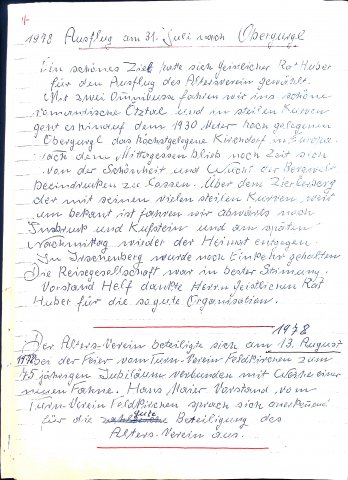 1978 Ausflug am 31. Juli nach Obergurgl
Ein schönes Ziel hatte sich geistlicher Rat Huber
für den Ausflug des Altersverein gewählt.
Mit zwei Omnibuse fahren wir ins schöne
romantische Ötztal und in steilen Kurven
geht es hinauf dem 1930 Meter hoch gelegenen
Obergurgl das höchstgelegene Kirchdorf in Europa.
Nach dem Mittagessen blieb noch Zeit sich
von der Schönheit und Wucht der Bergwelt
beeindruken zu lassen. Über dem Zierlerberg
der mit seinen vielen steilen Kurven, weit
um bekant ist fahren wir abwärts nach
Insbruk und Kufstein und am späten
Nachmittag wieder der Heimat entgegen.
In Irschenberg wurde noch Einkehr gehalten
Die Reisegesellschaft war in bester Stimung.
Vorstand Helf dankte Herrn geistlichen Rat
Huber für die so gute Organisation.
1978
Der Alters-Verein beteiligte sich am 13. August
1978 bei der Feier vom Turn-Verein Feldkirchen zum
75 jährigen Jubiläum verbunden mit Weihe einer
neuen Fahne. Hans Maier Vorstand, vom
Turn-Verein Feldkirchen sprach sich anerkennend
für die gute Beteiligung des
Alters-Verein aus.